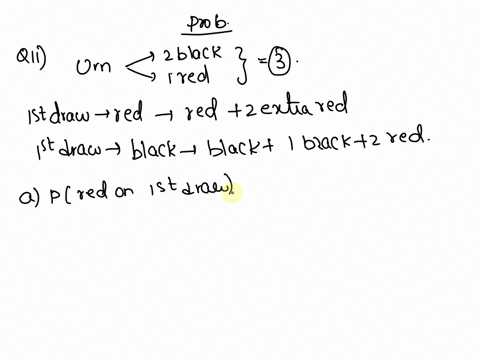 Prob.
Q11) Urn → 2 black
→ 1 red } = 3.
1st draw → red → red + 2 extra red
1st draw → black → black + 1 black + 2 red.
a) P( red on 1st draw)